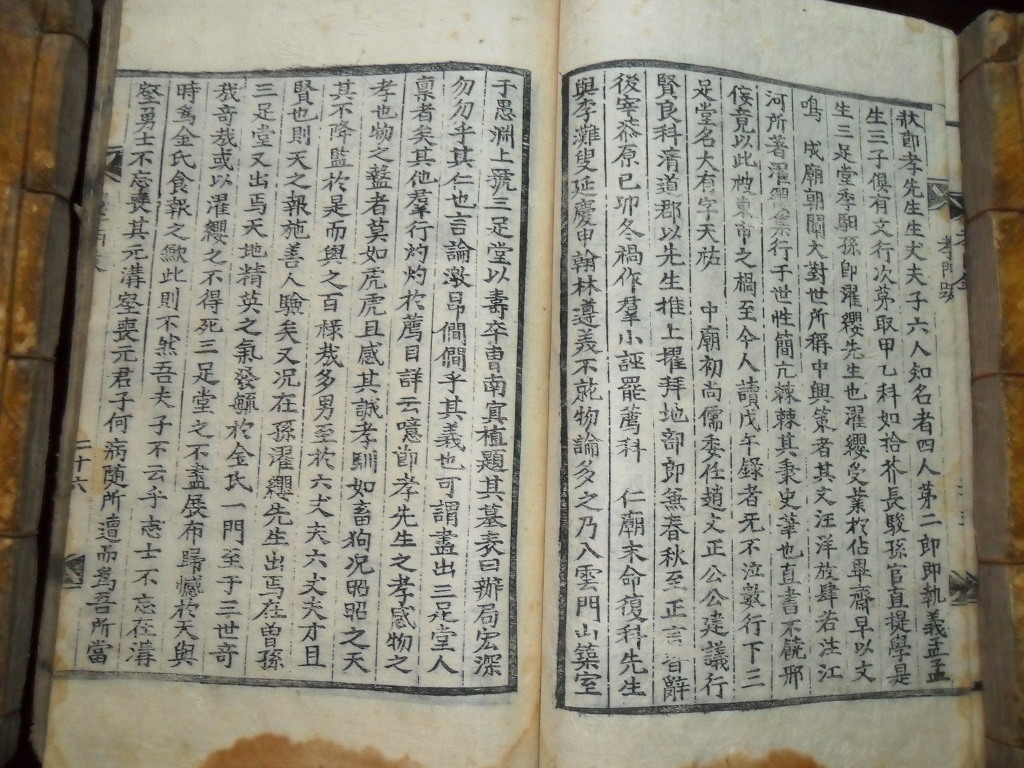 狀節孝先生生丈夫子六人知名者四人第二即執義孟
生三子俱有文行次第取甲乙科如拾芥長駿孫官直提學是
生三足堂季馹孫即濯纓先生也濯纓受業於佔畢齋早以文
鳴 成廟朝闡大對世所稱中興策者其文汪洋放肆若注江
河所著濯纓集行于世性簡亢棘棘其秉史筆也直書不饒邪
佞竟以此被東市之禍至今人讀戊午錄者无不泣數行下三
足堂名大有字天祐 中廟初尚儒委任趙文正公公建議行
賢良科清道郡以先生推上擢拜地部郎兼春秋至正言皆辭
後宰㭗原己卯冬禍作羣小誣罷薦科 仁廟末命復科先生
與李灘叟延慶申翰林遵美不就物論多之乃入雲門山築室
于愚淵上號三足堂以壽卒曺南冥植題其墓表曰辦局宏深
勿勿乎其仁也言論激昂僩僩乎其義也可謂盡出三足堂人
稟者矣其他羣行灼灼於薦目詳云噫節孝先生之孝感物之
孝也物之蠢者莫如虎虎且感其誠孝馴如畜狗況昭昭之天
其不降監於是而與之百祿哉多男至於六丈夫六丈夫才且
賢也則天之報施善人驗矣又況在孫濯纓先生出焉在曾孫
三足堂又出焉天地精英之氣發毓於金氏一門至于三世奇
哉奇哉或以濯纓之不得死三足堂之不盡展布歸憾於天與
時爲金氏食報之歉此則不然吾夫子不云乎志士不忘在溝
壑勇士不忘喪其元溝壑喪元君子何病隨所遭而爲吾所當
孝門
二十六